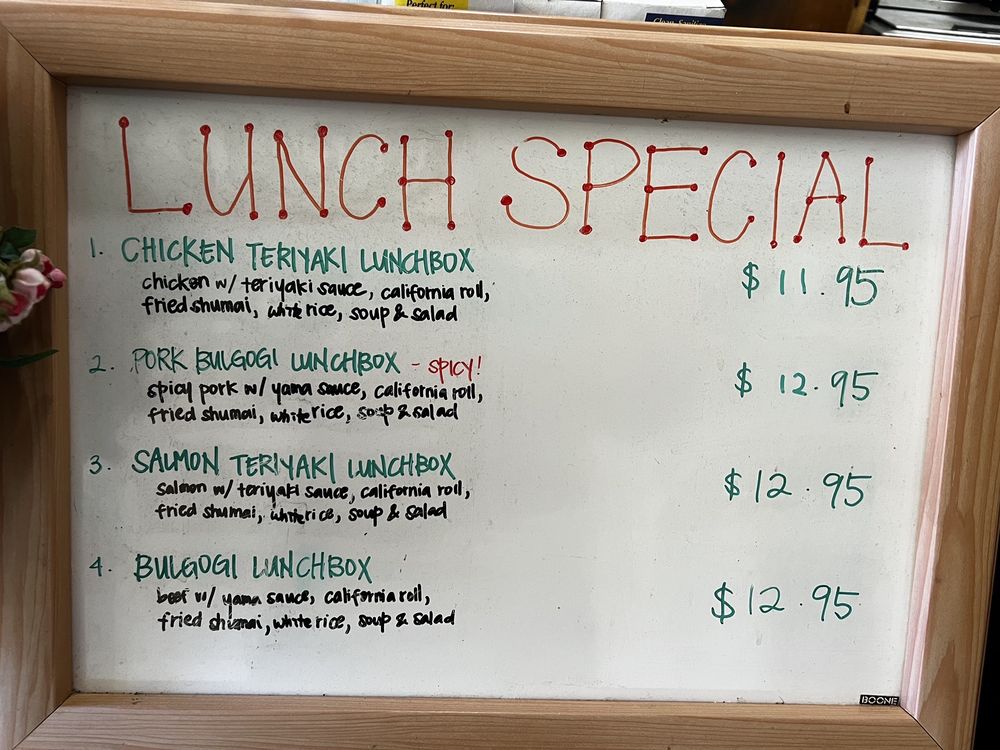 Perfect for:
LUNCH SPECIAL
1. CHICKEN TERIYAKI LUNCHBOX
chicken w/ teriyaki sauce, california roll,
fried shumai, white rice, soup & salad
$ 11.95
2. PORK BULGOGI LUNCHBOX - SPICY!
spicy pork w/ yama sauce, california roll,
fried shumai, white rice, soup & salad
$ 12.95
3. SALMON TERIYAKI LUNCHBOX
salmon w/ teriyaki sauce, california roll,
fried shumai, white rice, soup & salad
$ 12.95
4. BULGOGI LUNCHBOX
beef w/ yama sauce, california roll,
fried shumai, white rice, soup & salad
$ 12.95
BOONE